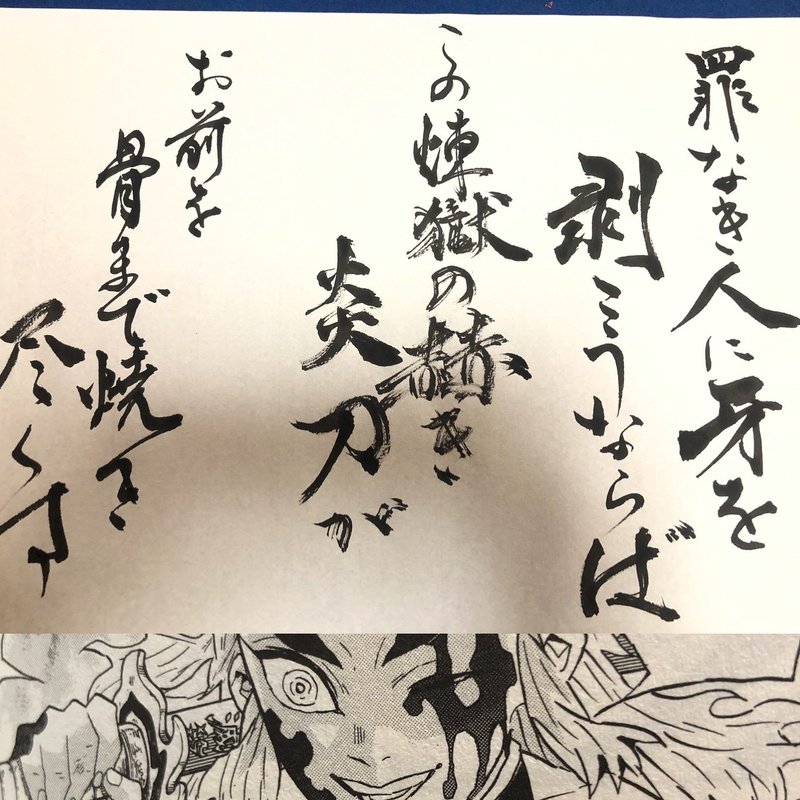 罪なき人に牙を
剥こうならば
この煉獄の赫き
炎刀が
お前を
骨まで焼き
尽くす